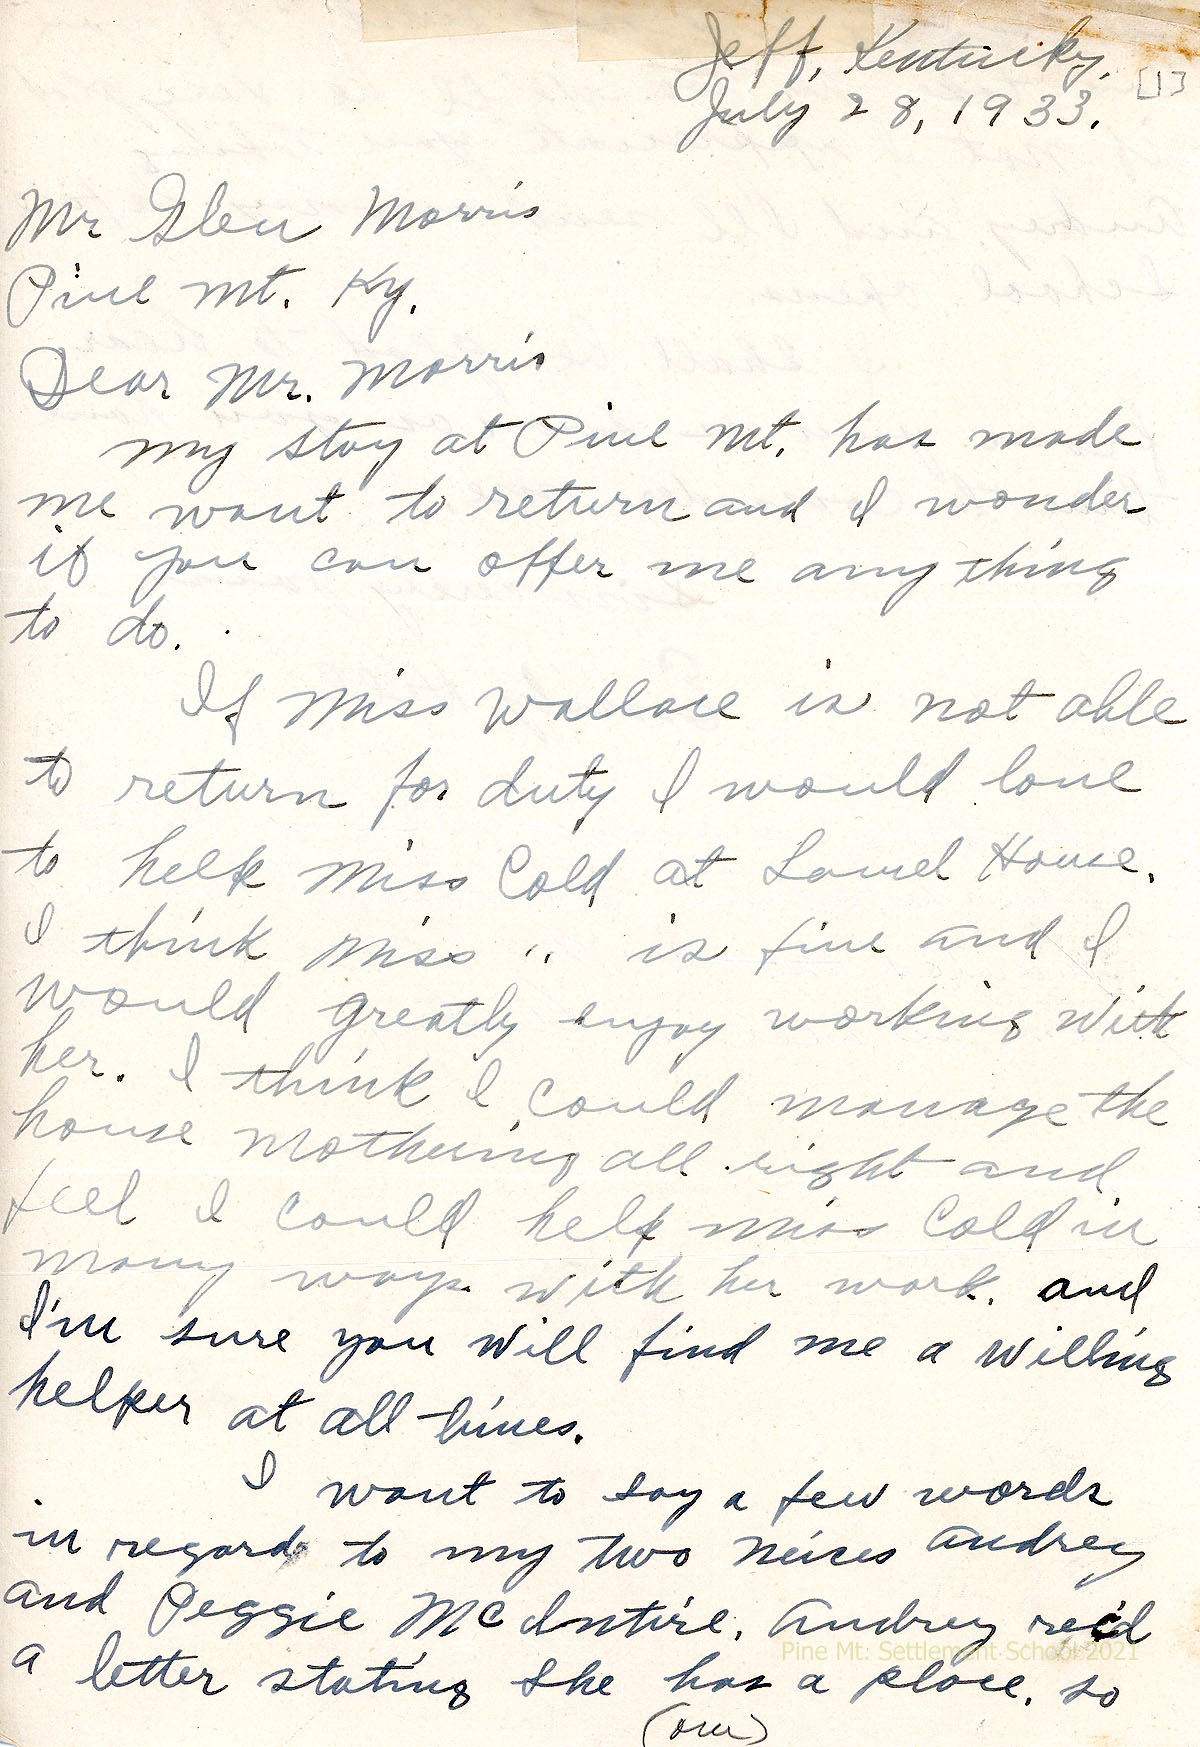 Jeff, Kentucky, [1]
July 28, 1933.
Mr Glen Morris
Pine Mt. Ky.
Dear Mr. Morris
my stay at Pine Mt. has made
me want to return and I wonder
if you can offer me any thing
to do.
If Miss Wallace is not able
to return for duty I would love
to help Miss Cold at Laurel House.
I think Miss " is fine and I
would greatly enjoy working with
her. I think I could manage the
house mothering all right and
feel I could help Miss Cold in
many ways with her work. and
I'm sure you will find me a willing
helper at all times.
I want to say a few words
in regard to my two neices Audrey
and Peggie McIntire. Audrey rec'd
a letter stating she has a place. so
(over)
Pine Mt. Settlement School 2021